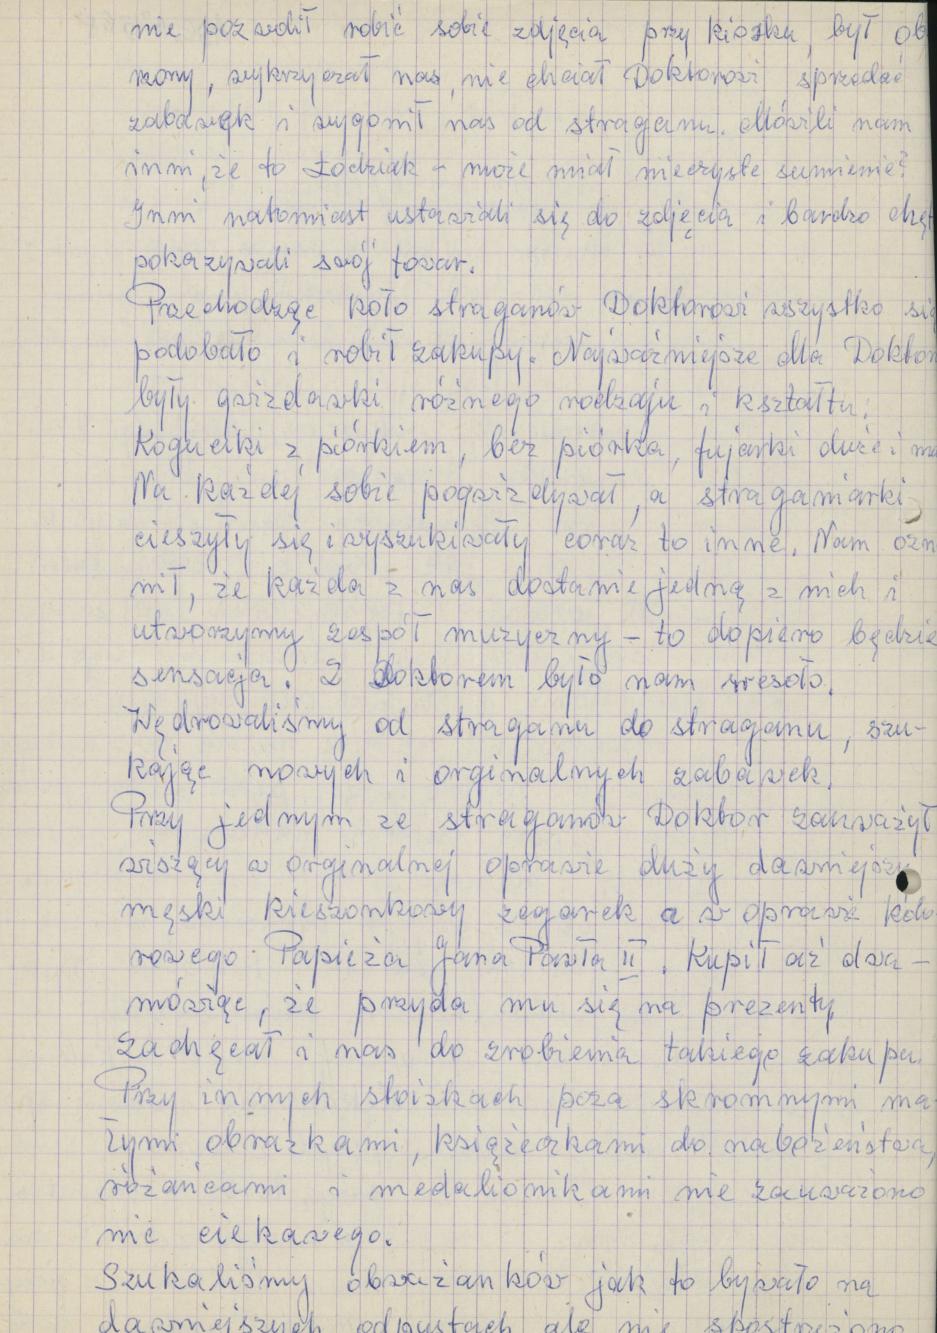 nie pozwolił robić sobie zdjęcia przy kiosku, był ob
rzony, wykrzyczał nas, nie chciał Doktorowi sprzedać
zabawek i wygonił nas od straganu. Mówili nam
inni, że to Łodziak - może miał nieczyste sumienie?
Inni natomiast ustawiali się do zdjęcia i bardzo chęt
pokazywali swój towar.
Przechodząc koło straganów Doktorowi wszystko się
podobało i robił zakupy. Najważniejsze dla Doktor
były gwizdawki różnego rodzaju i kształtu:
Koguciki z piórkiem, bez piórka, fujarki duże i ma
Na każdej sobie pogwizdywał, a straganiarki
cieszyły się i wyszukiwały coraz to inne. Nam ozn
mił, że każda z nas dostanie jedną z nich i
utworzymy zespół muzyczny - to dopiero będzie
sensacja. Z Doktorem było nam wesoło.
Wędrowaliśmy od straganu do straganu, szu-
kając nowych i orginalnych zabawek.
Przy jednym ze straganów Doktor zauważył
wiszący w orginalnej oprawie duży dawniejszy
męski kieszonkowy zegarek a w oprawie kolo
rowego Papieża Jana Pawła II. Kupił aż dwa -
mówiąc, że przyda mu się na prezenty,
zachęcał i nas do zrobienia takiego zakupu.
Przy innych stoiskach poza skromnymi ma
łymi obrazkami, książeczkami do nabożeństwa,
różańcami i medalionikami nie zauważono
nic ciekawego.
Szukaliśmy obważanków jak to bywało na
dawniejszych odpustach ale nie spostrzeżono